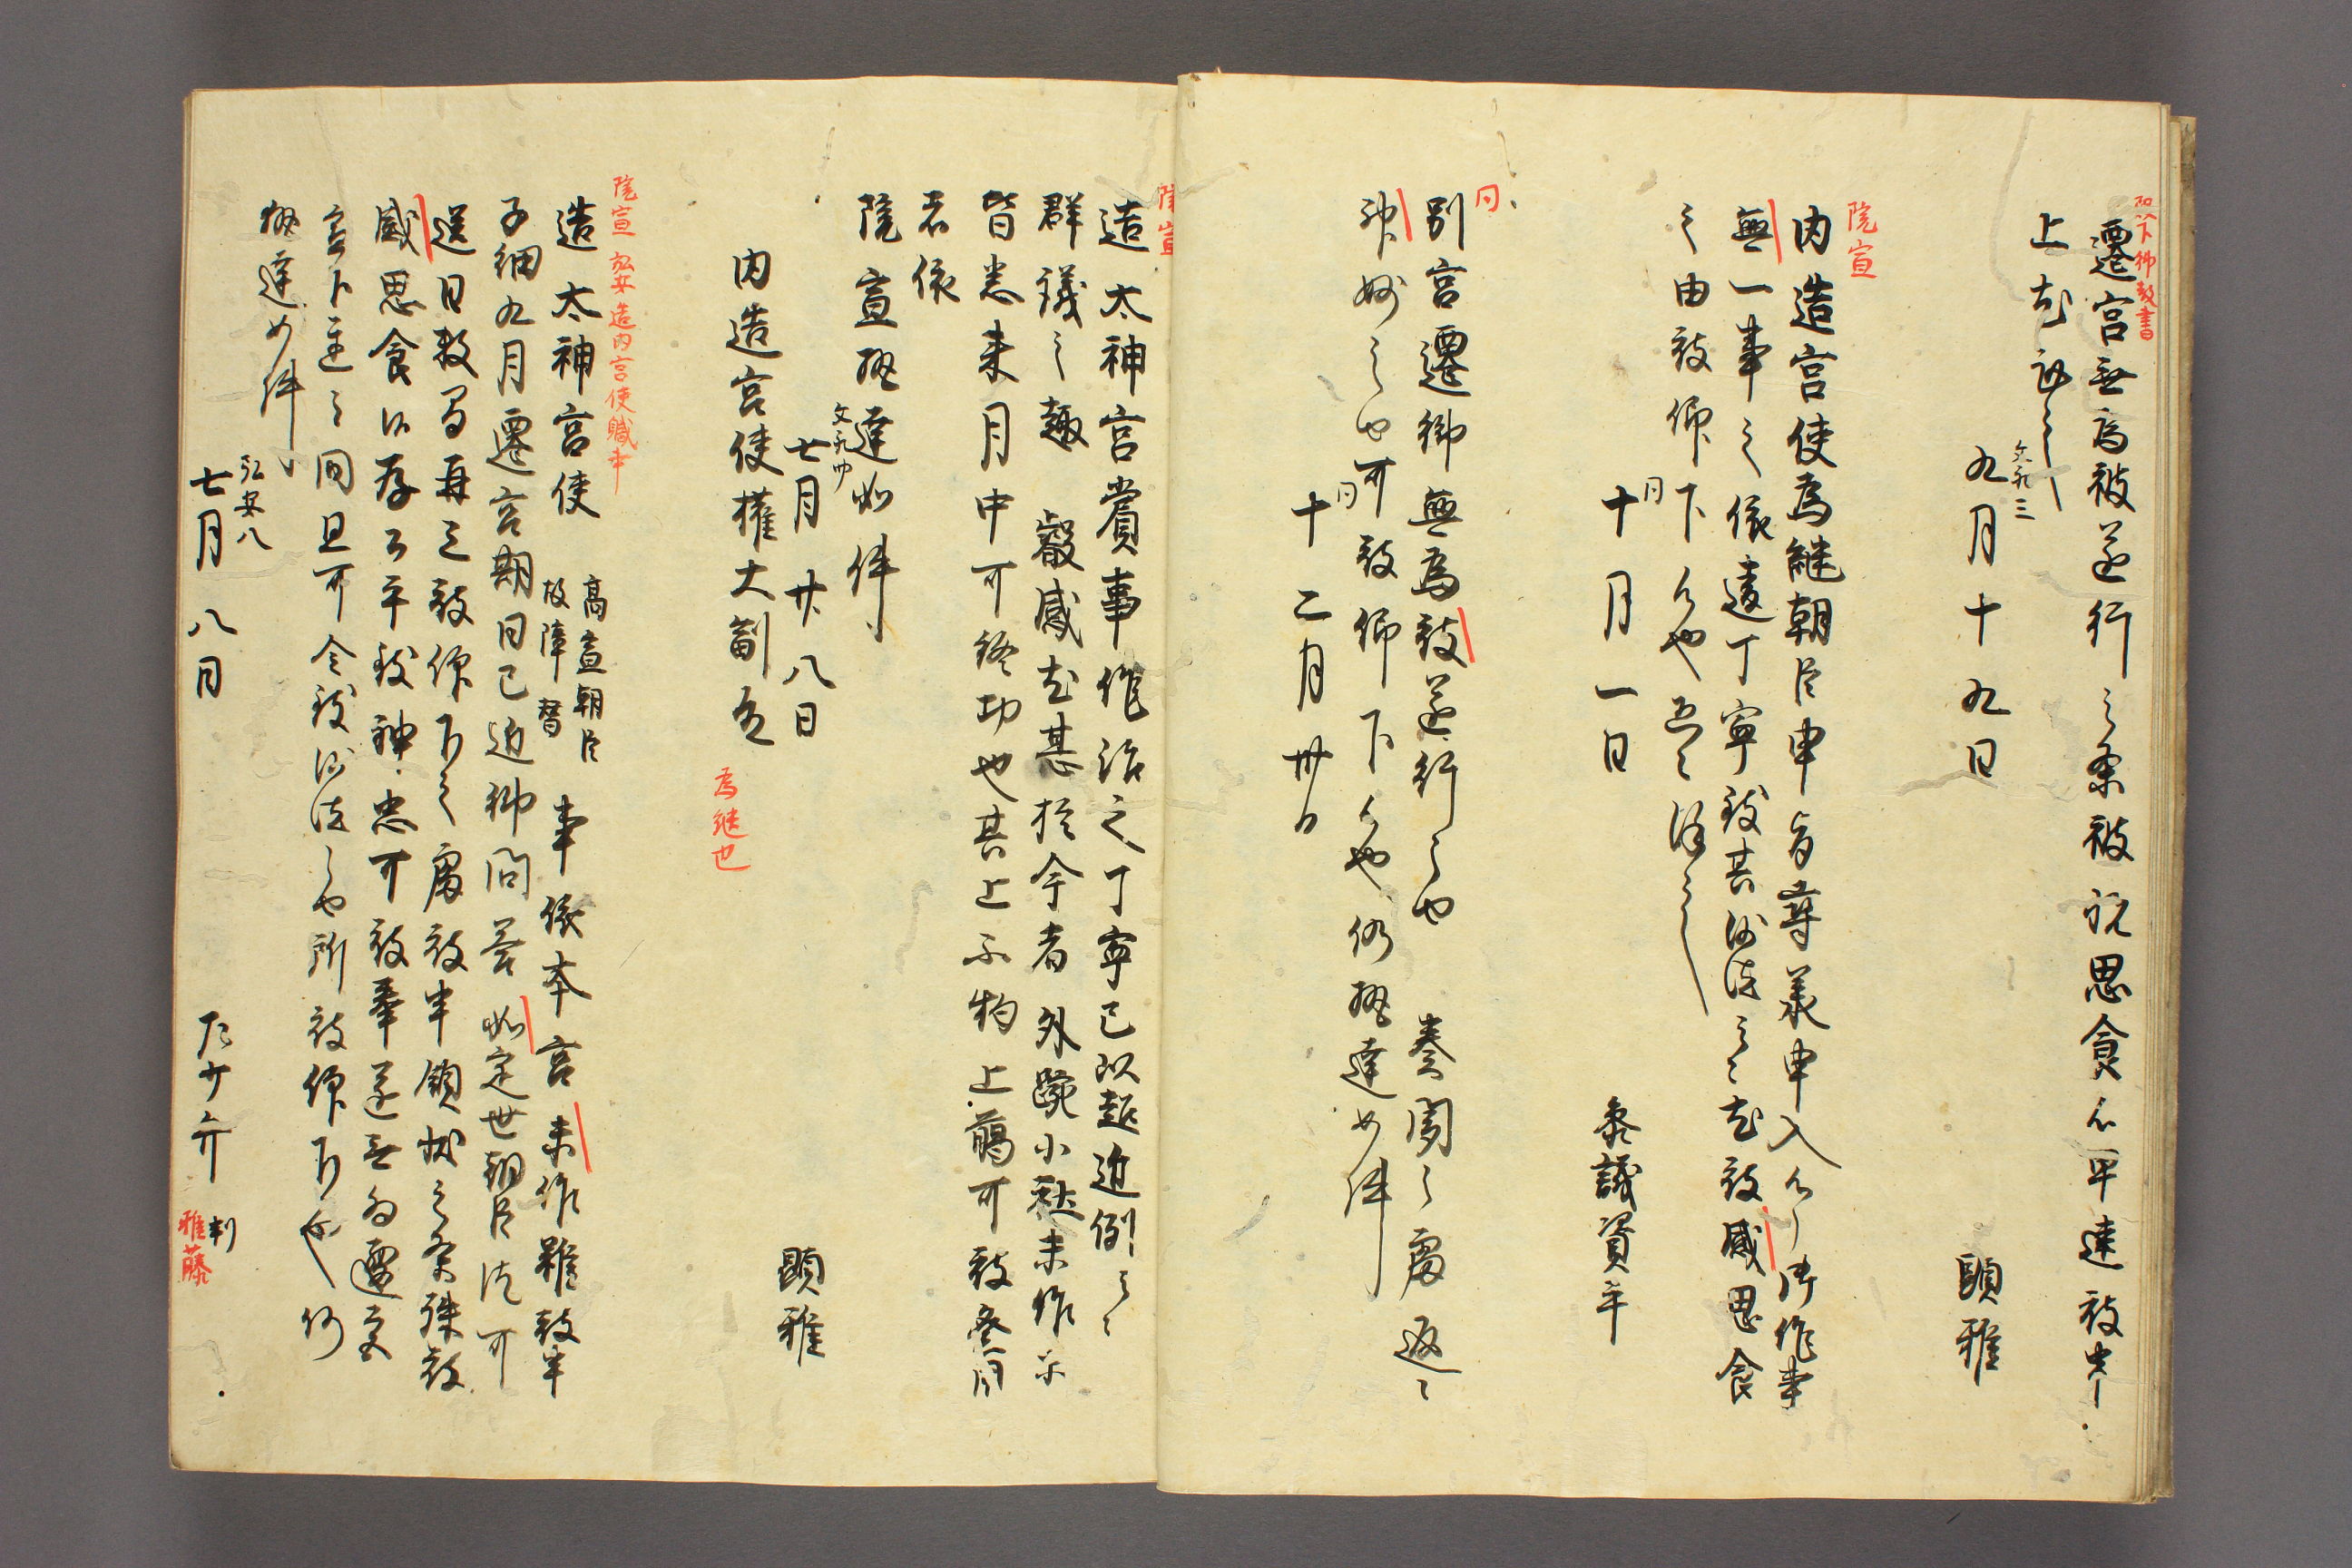 殿下御教書
遷宮無為被遂行之条被祝思食候畢達被申
上
文永三
九月十九日
顕雅
院宣
内造宮使為継朝臣申旨尋義申入候了御作事
無一事之依違丁寧致其沙汰云々尤被感思食
之由被仰下候也恐々謹言
同
十月一日
参議資平
同
別宮遷御無為被遂行之由奏聞之處返々
神妙之由可被仰下候也仍執達如件
同
十二月卅日
院宣
造太神宮賞事作治之丁寧已以超近例云々
群議之趣叡感尤甚於今者外院小社未作等
皆悉来月中可終功也其上不拘上臈可被登用
者依
院宣執達如件
文永四
七月廿八日
顕雅
内造宮使権大副
為継也
院宣 弘安造内宮使職事
造太神宮使 高直朝臣故障替 事依本宮未作雖被申
子細九月遷宮期日已近御問答如定世朝臣注可
送日数歟再三被仰下之處被申領状之条殊被
感思食候存公平致神忠可被奉遂無為遷宮
宣下遅々間且可令致沙汰之由所被仰下也仍
執達如件
弘安八
七月八日
左少弁 判
雅藤